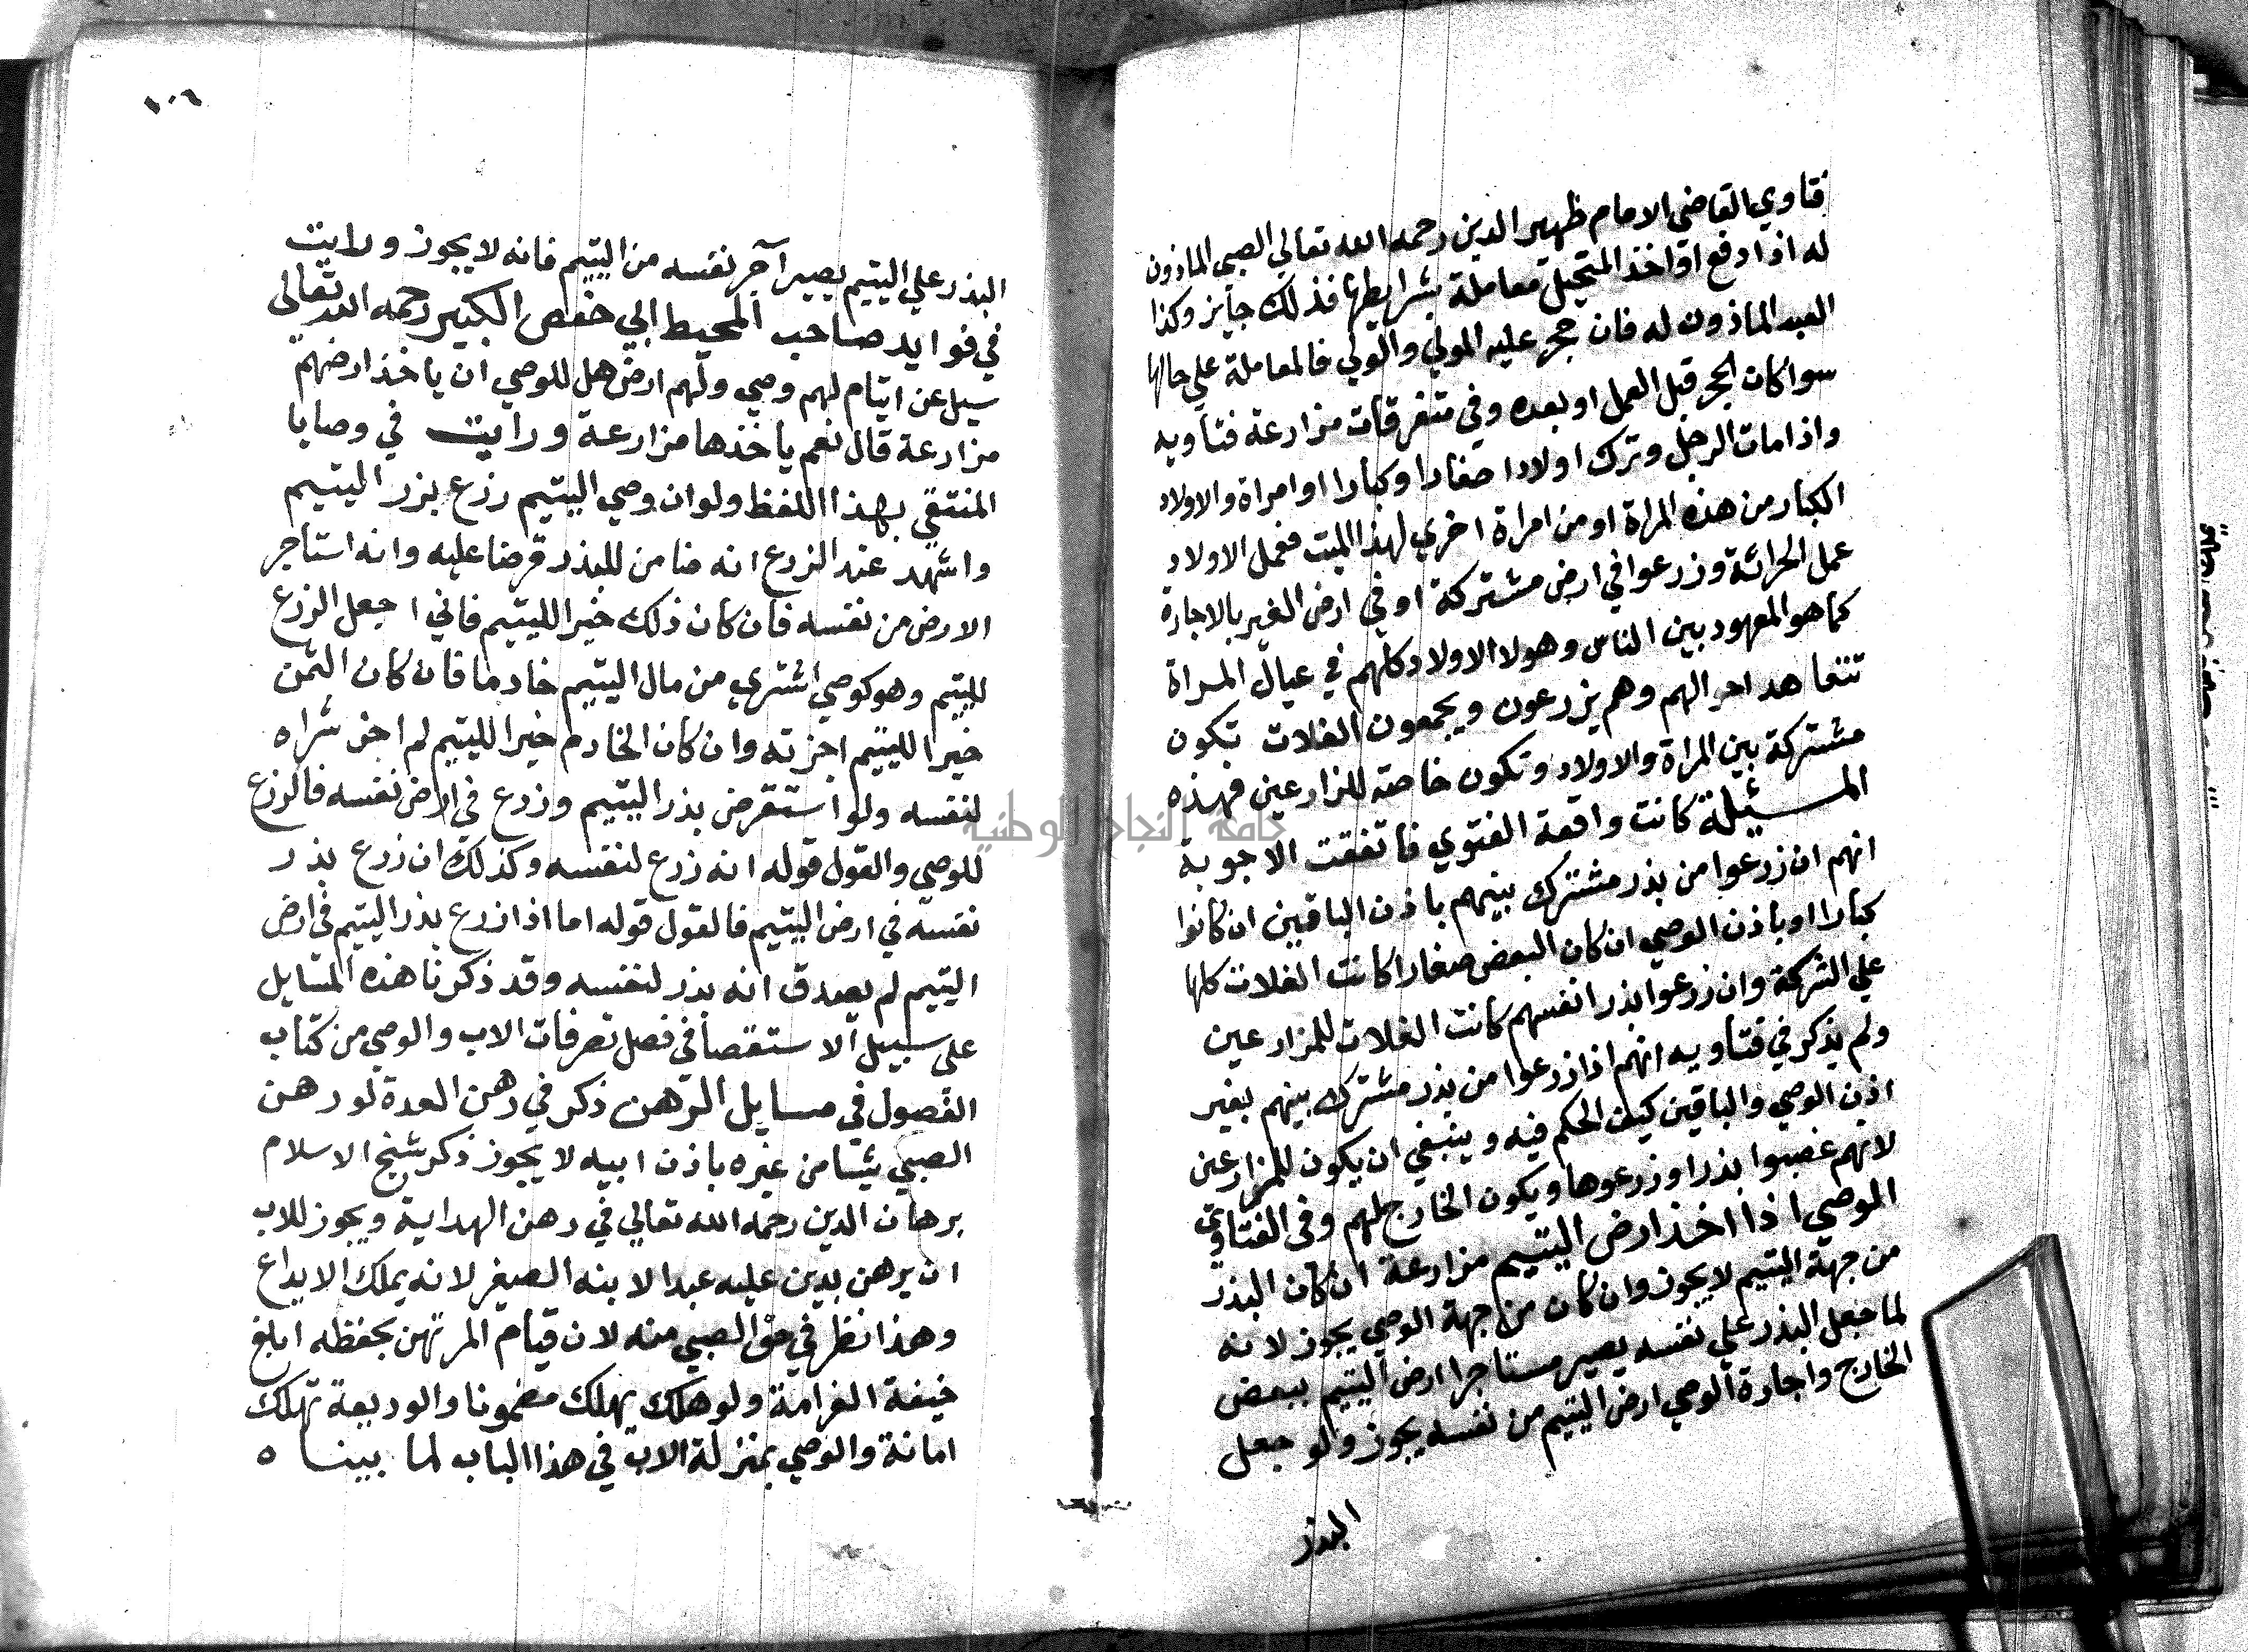 فتاوي القاضي الامام ظهير الدين رحمه الله تعالي الصبي الماذون
له اذا دفع او اخذ النخيل معاملة بشرايطها فذلك جايز وكذا
العبد الماذون له فان حجر عليه المولي والولي فالمعاملة علي حالها
سوا كان الحجر قبل العمل او بعده وفي متفرقات مزارعة فتاويه
واذا مات الرجل وترك اولادا صغارا وكبارا او امراة والاولاد
الكبار من هذه المراة او من امراة اخري لهذا الميت فعمل الاولاد
عمل الحراثة وزرعوا في ارض مشتركة او في ارض الغير بالاجارة
كما هو المعهود بين الناس وهولا الاولاد كلهم في عيال المراة
تتعاهد احوالهم وهم يزرعون ويجمعون الغلات تكون
مشتركة بين المراة والاولاد وتكون خاصة للزارعين فهذه
المسئيلة كانت واقعة الفتوي فاتفقت الاجوبة
انهم ان زرعوا من بذر مشترك بينهم باذن الباقين ان كانوا
كبارا او باذن الوصي ان كان البعض صغارا كانت الغلات كلها
علي الشركة وان زرعوا بذر انفسهم كانت الغلات للمزارعين
ولم يذكر في فتاويه انهم اذا زرعوا من بذر مشترك بينهم بغير
اذن الوصي والباقين كيف الحكم فيه وينبغي ان يكون للمزارعين
لانهم غصبوا بذرا وزرعوها ويكون الخارج لهم وفي الفتاوي
الموصي اذا اخذ ارض اليتيم مزارعة ان كان البذر
من جهة اليتيم لا يجوز وان كان من جهة الوصي يجوز لانه
لما جعل البذر علي نفسه يصير مستاجرا ارض اليتيم ببعض
الخارج واجارة الوصي ارض اليتيم من نفسه يجوز ولو جعل
البذر
١٠٦
البذر علي اليتيم يصير آجر نفسه من اليتيم فانه لا يجوز ورايت
في فوايد صاحب المحيط ابي حفص الكبير رحمه الله تعالى
سيل عن ايتام لهم وصي ولهم ارض هل للوصي ان ياخذ ارضهم
مزارعة قال نعم ياخذها مزارعة ورايت في وصايا
المنتقي بهذا اللفظ ولو ان وصي اليتيم زرع بزر اليتيم
واشهد عند الزرع انه ضامن للبذر قرضا عليه وانه استاجر
الارض من نفسه فان كان ذلك خيرا لليتيم فاني اجعل الزرع
لليتيم وهو كوصي اشتري من مال اليتيم خادما فان كان الثمن
خيرا لليتيم اجزته وان كان الخادم خيرا لليتيم لم اجز شراه
لنفسه ولو استقرض بذر اليتيم وزرع في ارض نفسه فالزرع
للوصي والقول قوله انه زرع لنفسه وكذلك ان زرع بذر
نفسه في ارض اليتيم فالقول قوله اما اذا زرع بذر اليتيم في ارض
اليتيم لم يصدق انه بذر لنفسه وقد ذكرنا هذه المسايل
على سبيل الاستقصا في فصل تصرفات الاب والوصي من كتاب
الفصول في مسايل الرهن ذكر في رهن العدة لو رهن
الصبي شيئا من غيره باذن ابيه لا يجوز ذكر شيخ الاسلام
برهان الدين رحمه الله تعالي في رهن الهداية ويجوز للاب
ان يرهن بدين عليه عبدا لابنه الصغير لانه يملك الايداع
وهذا نظر في حق الصبي منه لان قيام المرتهن بحفظه ابلغ
خيفة الغرامة ولو هلك يهلك مضمونا والوديعة تهلك
امانة والوصي بمنزلة الاب في هذا الباب لما بينا ٥
جامعة النجاح الوطنية